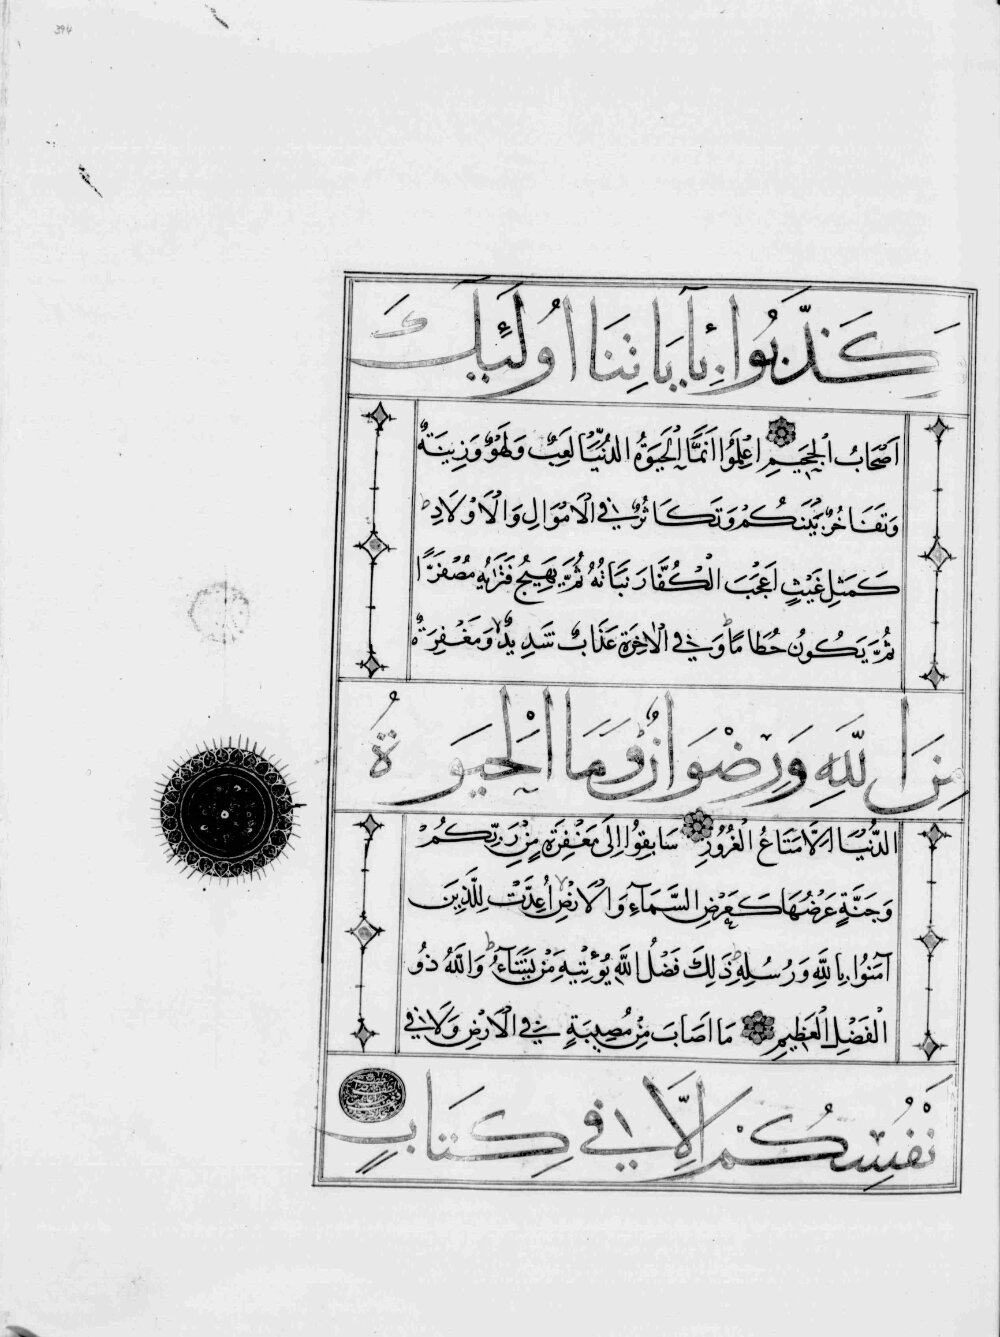 394
كَذَّبُوا بِآيَاتِنَا أُولَئِكَ
أَصْحَابُ الْجَحِيمِ اِعْلَمُوا أَنَّمَا الْحَيَوةُ الدُّنْيَا لَعِبٌ وَلَهْوٌ وَزِينَةٌ
وَتَفَاخُرٌ بَيْنَكُمْ وَتَكَاثُرٌ فِي الْأَمْوَالِ وَالْأَوْلَادِ ط
كَمَثَلِ غَيْثٍ أَعْجَبَ الْكُفَّارَ نَبَاتُهُ ثُمَّ يَهِيجُ فَتَرَاهُ مُصْفَرًّا
ثُمَّ يَكُونُ حُطَامًا ط وَفِي الْآخِرَةِ عَذَابٌ شَدِيدٌ لا وَمَغْفِرَةٌ
مِنَ اللَّهِ وَرِضْوَانٌ وَمَا الْحَيَوةُ
الدُّنْيَا إِلَّا مَتَاعُ الْغُرُورِ سَابِقُوا إِلَى مَغْفِرَةٍ مِنْ رَبِّكُمْ
وَجَنَّةٍ عَرْضُهَا كَعَرْضِ السَّمَاءِ وَالْأَرْضِ لا أُعِدَّتْ لِلَّذِينَ
آمَنُوا بِاللَّهِ وَرُسُلِهِ ط ذَلِكَ فَضْلُ اللَّهِ يُؤْتِيهِ مَنْ يَشَاءُ ط وَاللَّهُ ذُو
الْفَضْلِ الْعَظِيمِ مَا أَصَابَ مِنْ مُصِيبَةٍ فِي الْأَرْضِ وَلَا فِي
نْفُسِكُمْ إِلَّا فِي كِتَابٍ